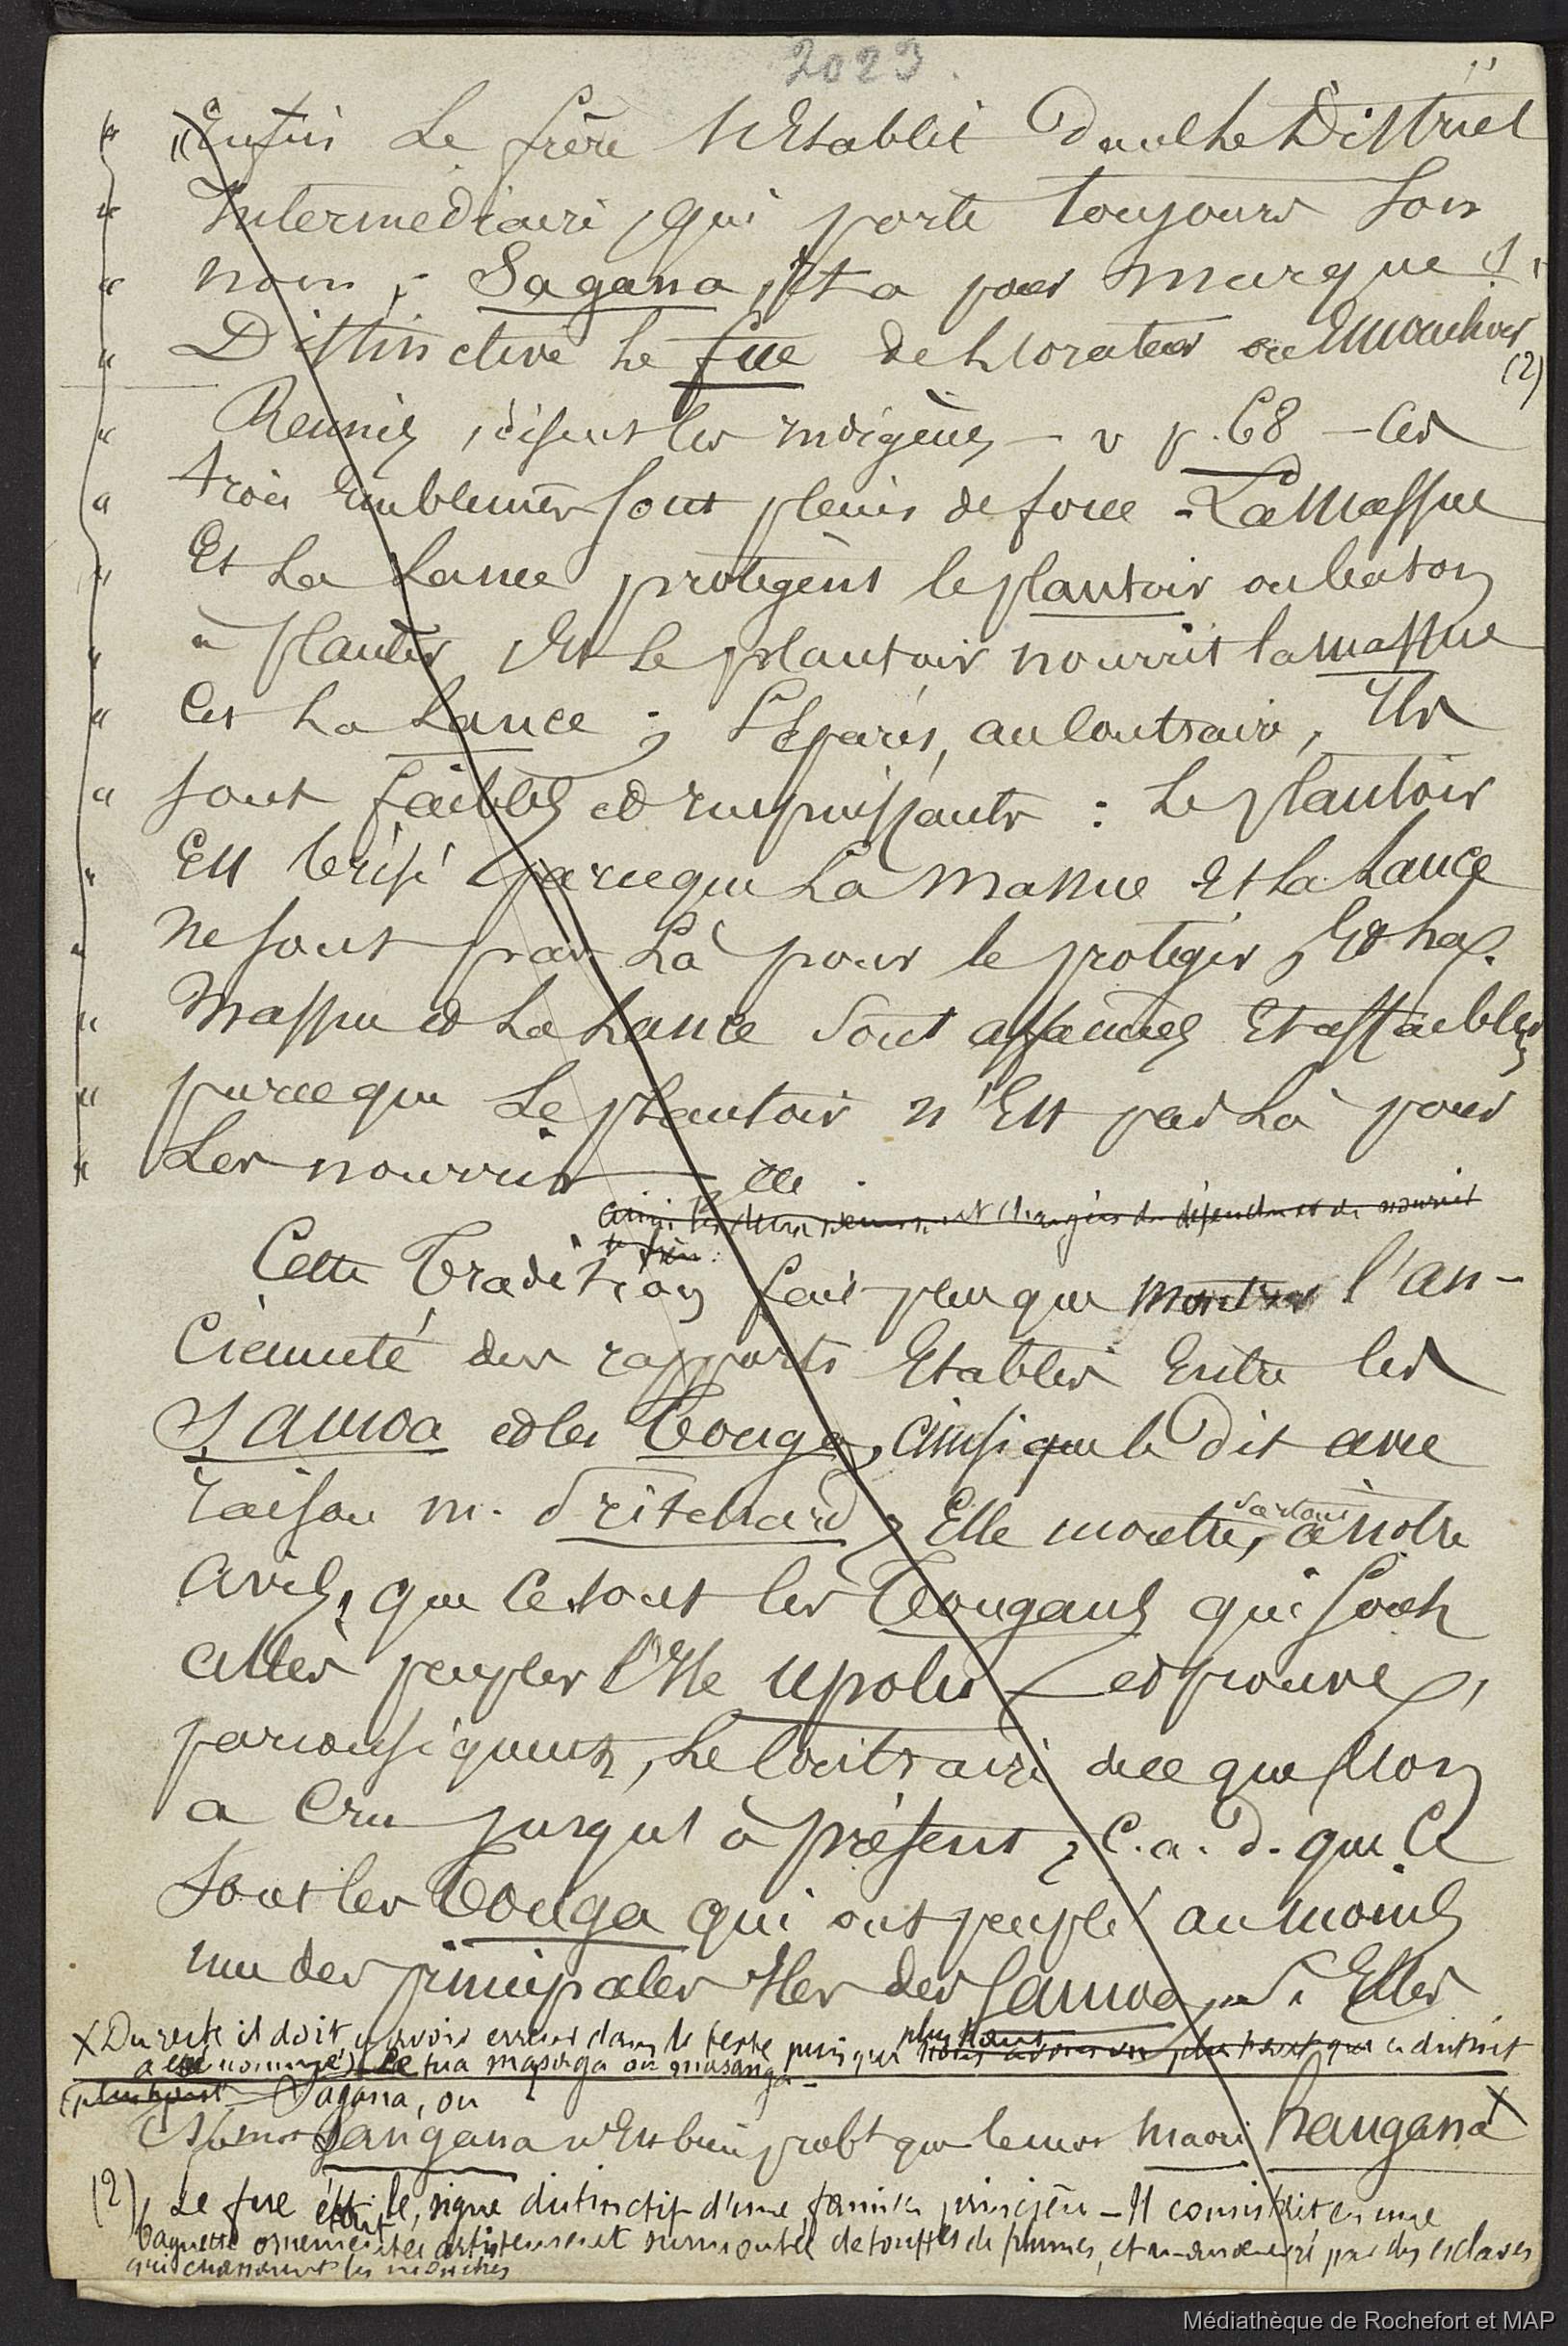 2023.
" Enfin le frère s'établit dans le District
" Intermédiaire, qui porte toujours son
" nom, - Sagana, Et a pour marque
" Distinctive le fue de l'orateur ou Emouchoir (2)
" Réunis, disent les indigènes - v p. 68 - Ces
" trois Emblèmes sont pleins de force - La Massue
" Et La Lance protègent le plantoir ou baton
" à planter, Et Le plantoir nourrit la massue
" Et La Lance ; Séparés, au contraire, Ils
" sont faibles et impuissants : Le plantoir
" Est brisé parceque La massue Et La Lance
" Ne sont pas Là pour le protéger, Et La
" Massue et La Lance sont affamées Et affaiblies
" parceque Le plantoir n'Est pas Là pour
" Les nourrir - Etc.
Ainsi les deux sœurs et chargées de défendre et de nourrir
le frère.
Cette Tradition fait plus que montrer l'an-
cienneté des rapports Etablis Entre les
Samoa et les Tonga, ainsi que le dit avec
raison M. Pritchard ; Elle montre, surtout à notre
avis, que ce sont les Tongans qui sont
allés peupler l'Ile Upolu - et prouve,
par conséquent, Le Contraire de ce que l'on
a Cru jusqu'à présent, C.a.d. que Ce
sont les Tonga qui ont peuplé au moins
une des principales Iles des Samoa, Si Elles
X Du reste il doit y avoir erreur dans le texte puisque plus haut nous avons vu plus haut que ce district
a été nommé Le tua masaga ou masanga -
(plus haut Sagana, ou
Sangana n'Est bien probt que le mot Maori hangana X
(2) Le fue était le signe distinctif d'une famille princière - Il consistait en une
baguette ornementée artistement surmontée de touffes de plumes, et manœuvré par des esclaves
qui chassaient les mouches
Médiathèque de Rochefort et MAP